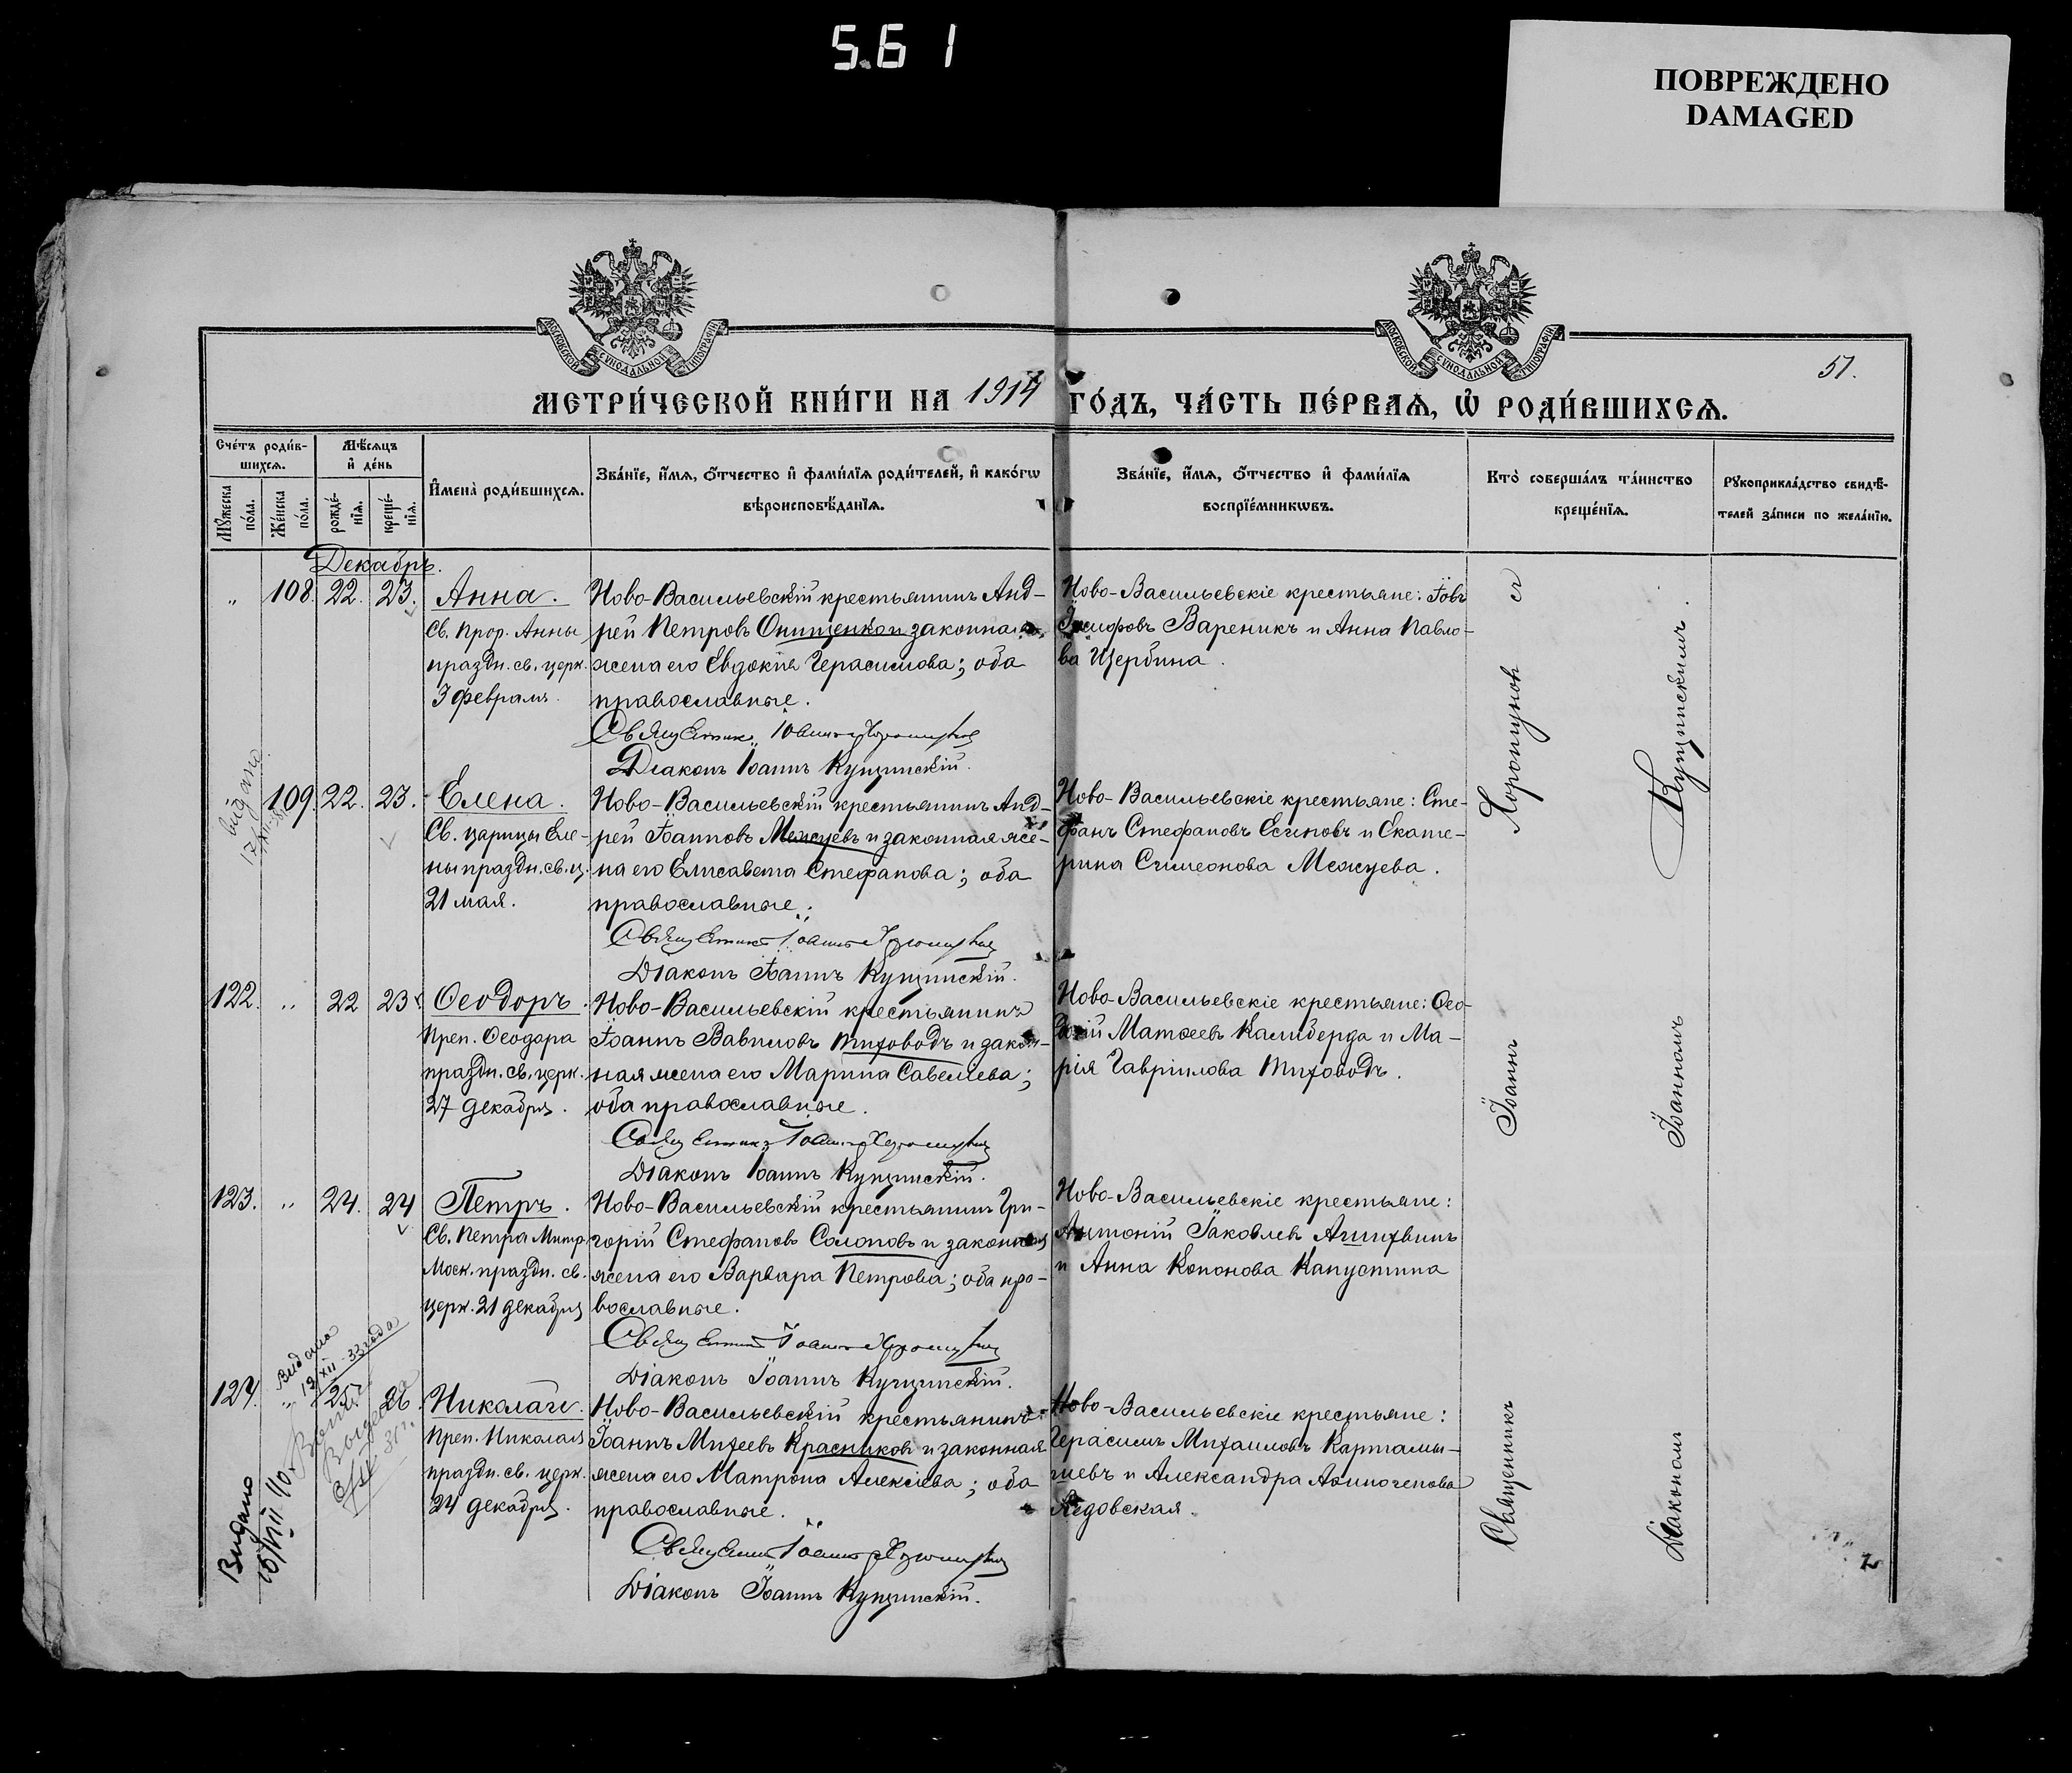 5.6 1
ПОВРЕЖДЕНО
DAMAGED
МОСКОВСКОЙ СѴНОДАЛЬНОЙ ТИПОГРАФІИ
МОСКОВСКОЙ СѴНОДАЛЬНОЙ ТИПОГРАФІИ
51.
МЕТРИ́ЧЕСКОЙ КНИ́ГИ НА 1914 ГО́ДЪ, ЧА́СТЬ ПЕ́РВАѦ, Ѡ҆ РОДИ́ВШИХСѦ.
Сче́тъ роди́в-
шихсѧ.
Мꙋ́жеска по́ла.
Же́нска по́ла.
Мѣ́сѧцъ и҆ де́нь
рожде́-
нїѧ.
креще́-
нїѧ.
И҆мена̀ роди́вшихсѧ.
Зва́нїе, и҆́мѧ, ѻ҆́тчество и҆ фами́лїѧ роди́телей, и҆ како́гѡ
вѣроисповѣ́данїѧ.
Зва́нїе, и҆́мѧ, ѻ҆́тчество и҆ фами́лїѧ
воспрїе́мникѡвъ.
Кто̀ соверша́лъ та́инство
креще́нїѧ.
Рꙋкоприкла́дство свидѣ́-
телей за́писи по жела́нїю.
Декабрь.
„ 108. 22. 23. Анна.
Св. Прор. Анны
праздн. св. церк.
3 февраля.
Ново-Васильевскій крестьянинъ Анд-
рей Петровъ Онищенко и законная
жена его Евдокія Герасимова; оба
православные.
Священникъ Іоаннъ Хоропунов
Діаконъ Іоаннъ Кущинскій.
Ново-Васильевскіе крестьяне: Іовъ
Іосифовъ Вареникъ и Анна Павло-
ва Щербина.
видана
109. 22. 23. Елена.
Св. царицы Еле-
ны праздн. св. ц.
21 мая.
Ново-Васильевскій крестьянинъ Анд-
рей Іоанновъ Межуевъ и законная же-
на его Елисавета Стефанова; оба
православные.
Священникъ Іоаннъ
Діаконъ Іоаннъ Кущинскій.
Ново-Васильевскіе крестьяне: Сте-
фанъ Стефановъ Есиповъ и Екате-
рина Симеонова Межуева.
122. „ 22 23 Ѳеодоръ.
Преп. Ѳеодора
праздн. св. церк.
27 декабря.
Ново-Васильевскій крестьянинъ
Іоаннъ Вавиловъ Тиховодъ и закон-
ная жена его Марина Савелиева;
оба православные.
Священникъ Іоаннъ
Діаконъ Іоаннъ Кущинскій.
Ново-Васильевскіе крестьяне: Ѳео-
досій Матѳеевъ Калиберда и Ма-
рія Гавріилова Тиховодъ.
123. „ 24. 24 Петръ.
Св. Петра Митр.
Моск. праздн. св.
церк. 21 декабря
Ново-Васильевскій крестьянинъ Гри-
горій Стефановъ Солоповъ и законная
жена его Варвара Петрова; оба пра-
вославные.
Священникъ Іоаннъ
Діаконъ Іоаннъ Кущинскій.
Ново-Васильевскіе крестьяне:
Антоній Іаковлевъ
и Анна Кононова Капустина
Видана
13/XII-33 года
124. „ 25. 26. Николай.
Преп. Николая
праздн. св. церк.
24 декабря.
Ново-Васильевскій крестьянинъ
Іоаннъ Михеевъ Красниковъ и законная
жена его Матрона Алексіева; оба
православные.
Священникъ Іоаннъ
Діаконъ Іоаннъ Кущинскій.
Ново-Васильевскіе крестьяне:
Герасимъ Михаиловъ Картамы-
шевъ и Александра
Ядовская.
Видано
Священникъ Іоаннъ
Діакономъ Іоанномъ Кущинскимъ.